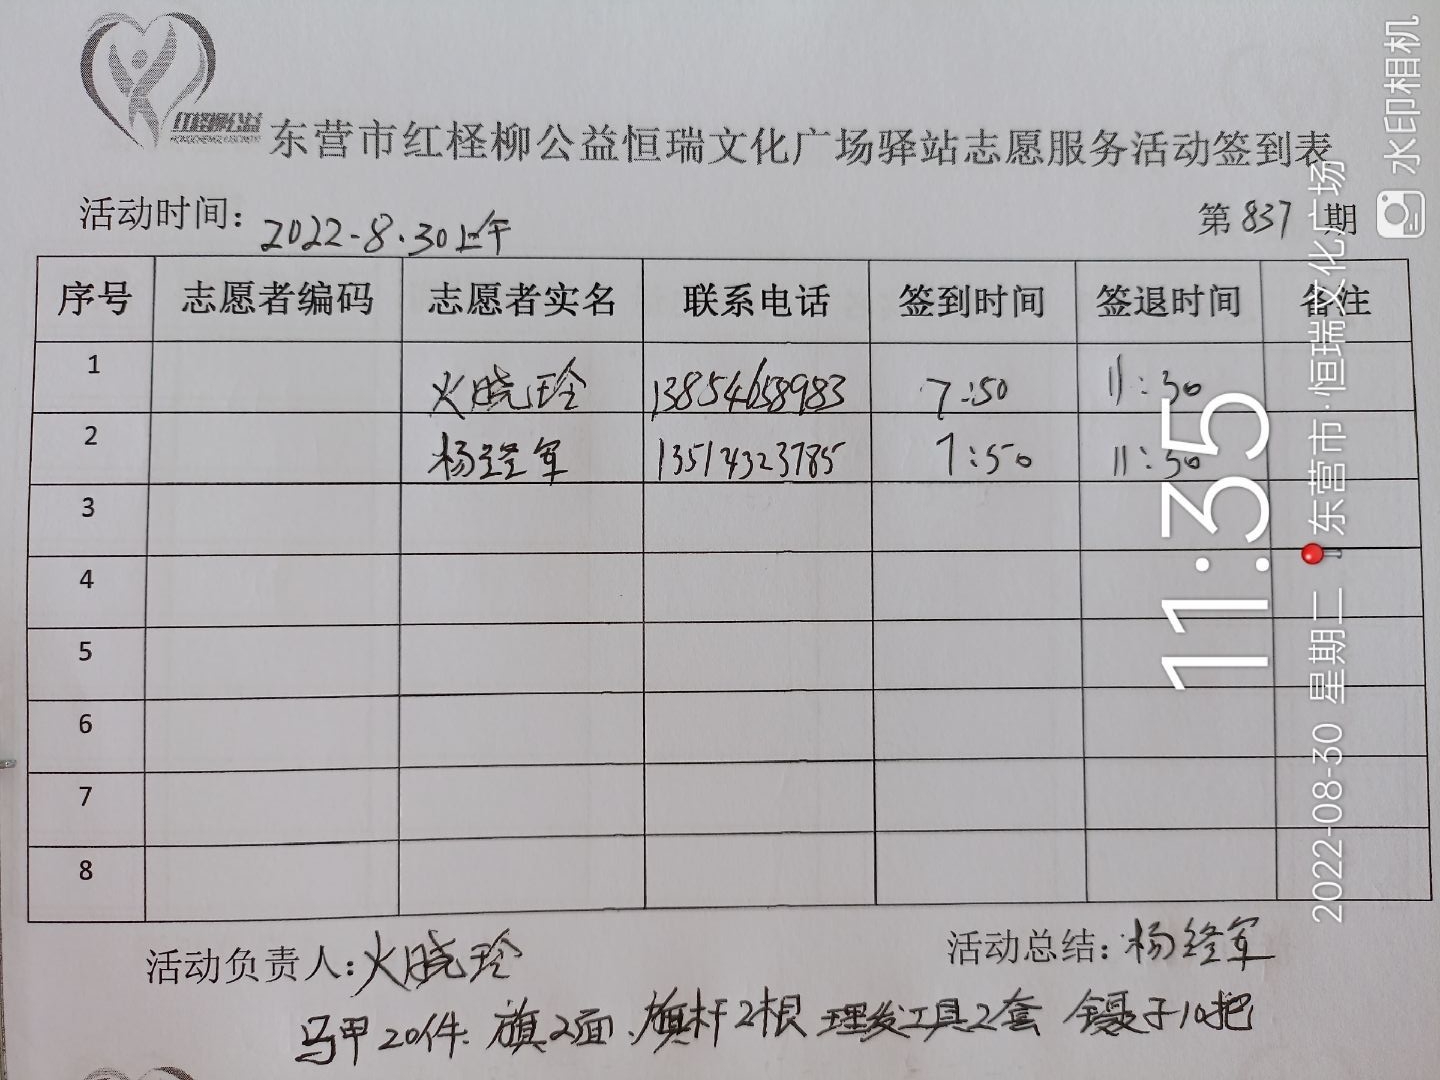 东营市红柽柳公益恒瑞文化广场驿站志愿服务活动签到表
活动时间：2022-8.30上午 第837期
序号 志愿者编码 志愿者实名 联系电话 签到时间 签退时间 备注
1 火晓玲 13854658983 7:50 11:30
2 杨经军 13514323785 7:50 11:30
3
4
5
6
7
8
活动负责人：火晓玲 活动总结：杨经军
马甲20件.旗2面、旗杆2根 理发工具2套 镊子10把
水印相机
11:35
2022-08-30 星期二 东营市·恒瑞文化广场